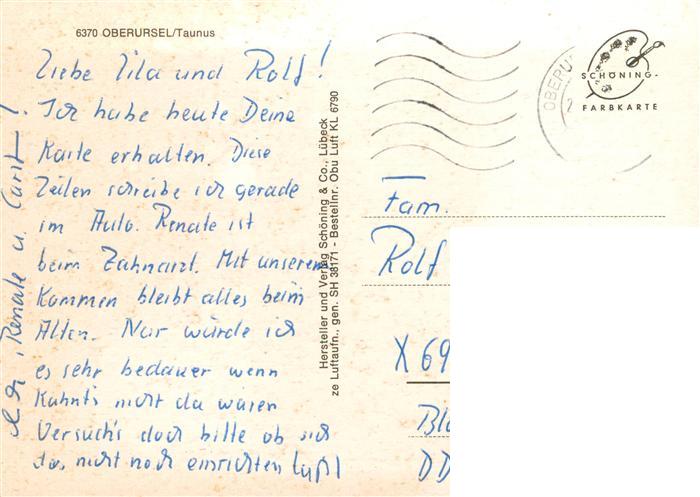 6370 OBERURSEL/Taunus
Liebe Lila und Rolf!
Ich habe heute Deine
Karte erhalten. Diese
Zeilen schreibe ich gerade
im Auto. Renate ist
beim Zahnarzt. Mit unserem
Kommen bleibt alles beim
Alten. Nur würde ich
es sehr bedauer wenn
Kahnt's nicht da wären
Versuch's doch bitte ob sich
das nicht noch einrichten läßt
Renate u.
Hersteller und Verlag Schöning & Co., Lübeck
ze Luftaufn., gen. SH 38171 - Bestellnr. Obu Luft KL 6790
OBERU
SCHÖNING-
FARBKARTE
Fam.
Rolf
X 69
Bl
DD